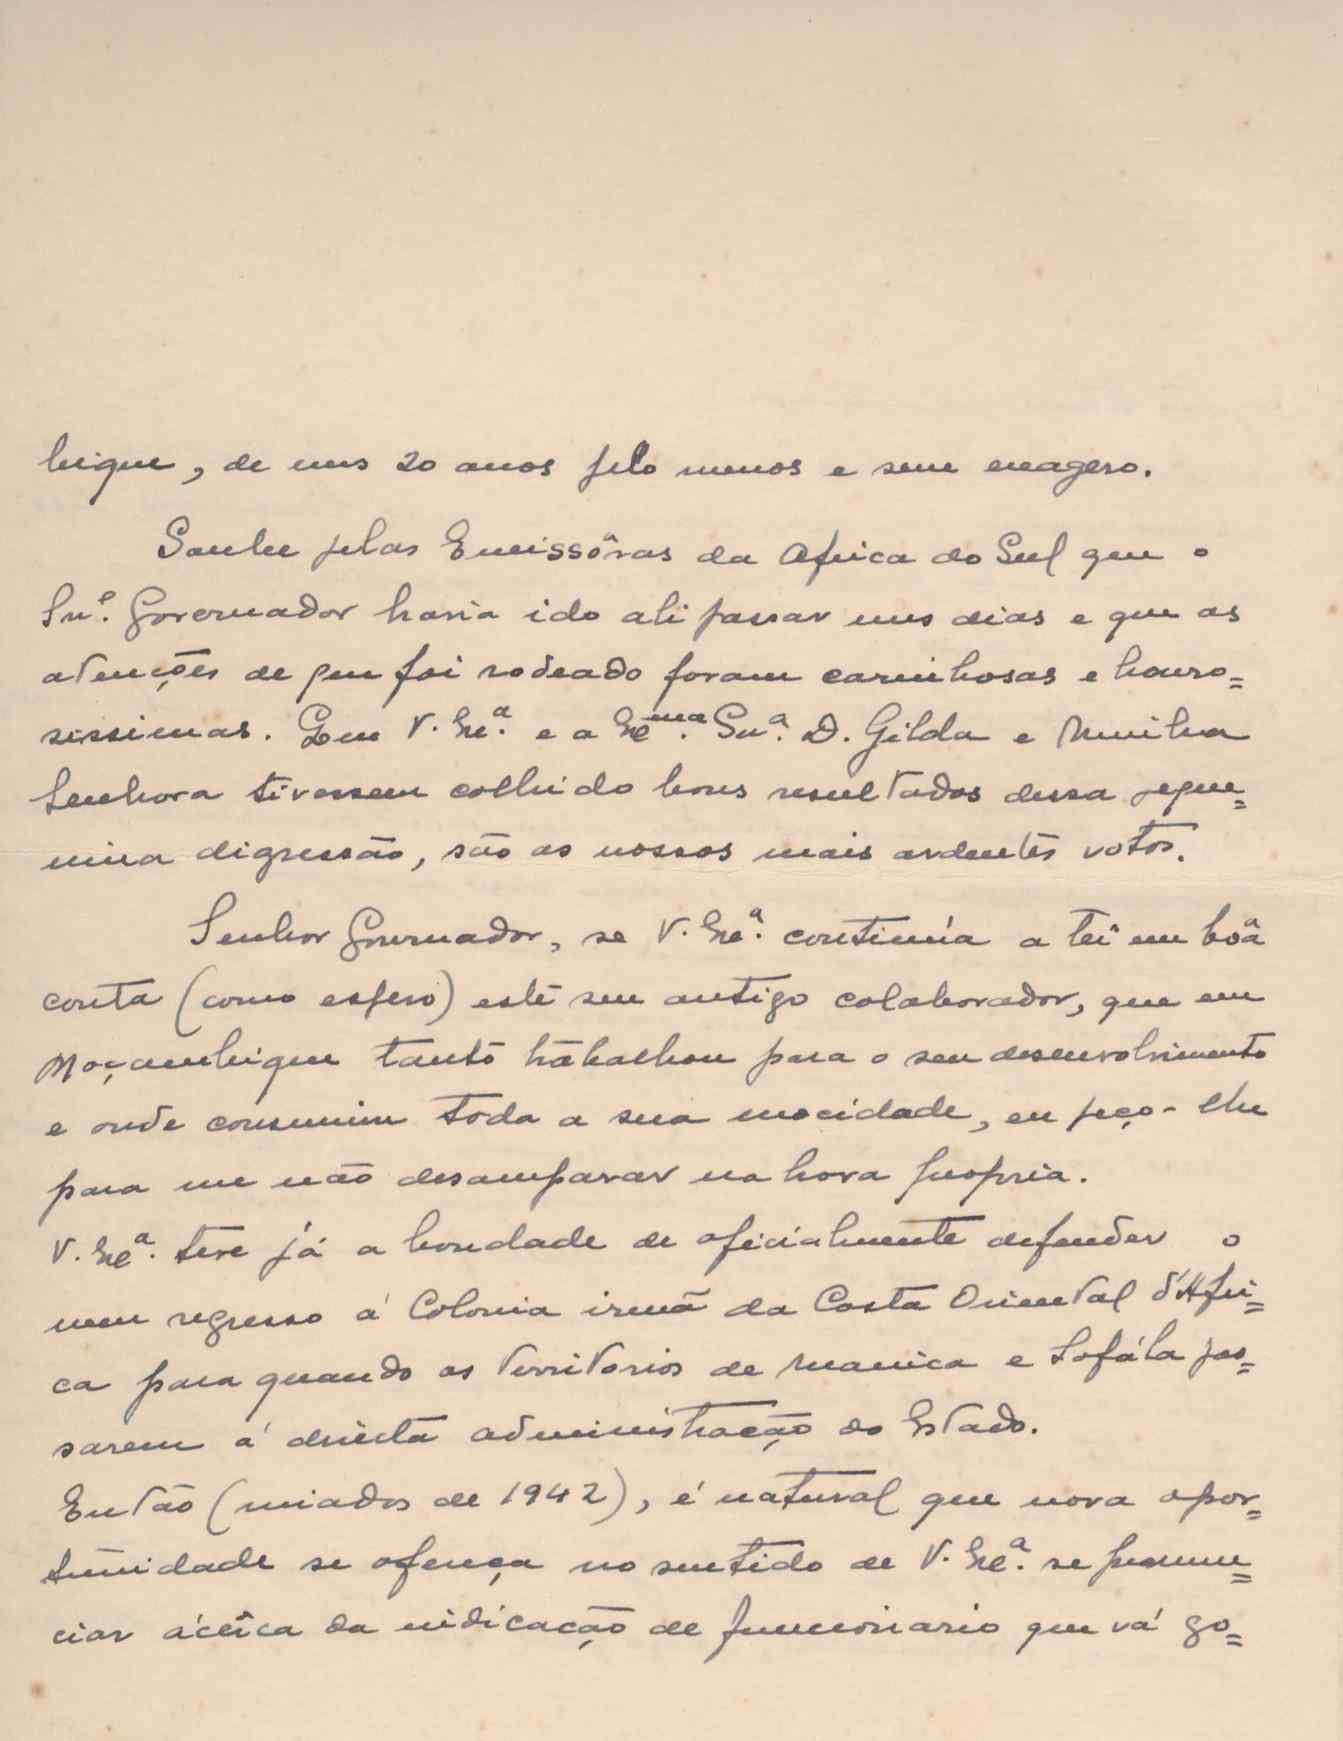 bique, de uns 20 anos pelo menos e sem exagero.
Soube pelas Emissôras da Africa do Sul que o
Snr. Governador havia ido ali passar uns dias e que as
atenções de que foi rodeado foram carinhosas e honro=
sissimas. Que V. Exª. e a Exma. Snrª. D. Gilda e Menina
Senhora tivessem colhido bons resultados dessa peque=
nina digressão, são os nossos mais ardentes votos.
Senhor Governador, se V. Exª. continúa a ter em bôa
conta (como espero) este seu antigo colaborador, que em
Moçambique tanto trabalhou para o seu desenvolvimento
e onde consumiu toda a sua mocidade, eu peço-lhe
para me não desamparar na hora propria.
V. Exª. teve já a bondade de oficialmente defender o
meu regresso á Colonia irmã da Costa Oriental d'Afri=
ca para quando os territorios de Manica e Sofála pas=
sarem á directa administração do Estado.
Então (miados de 1942), é natural que nova opor=
tunidade se ofereça no sentido de V. Exª. se pronun=
ciar ácêrca da indicação de funcionario que vá go=